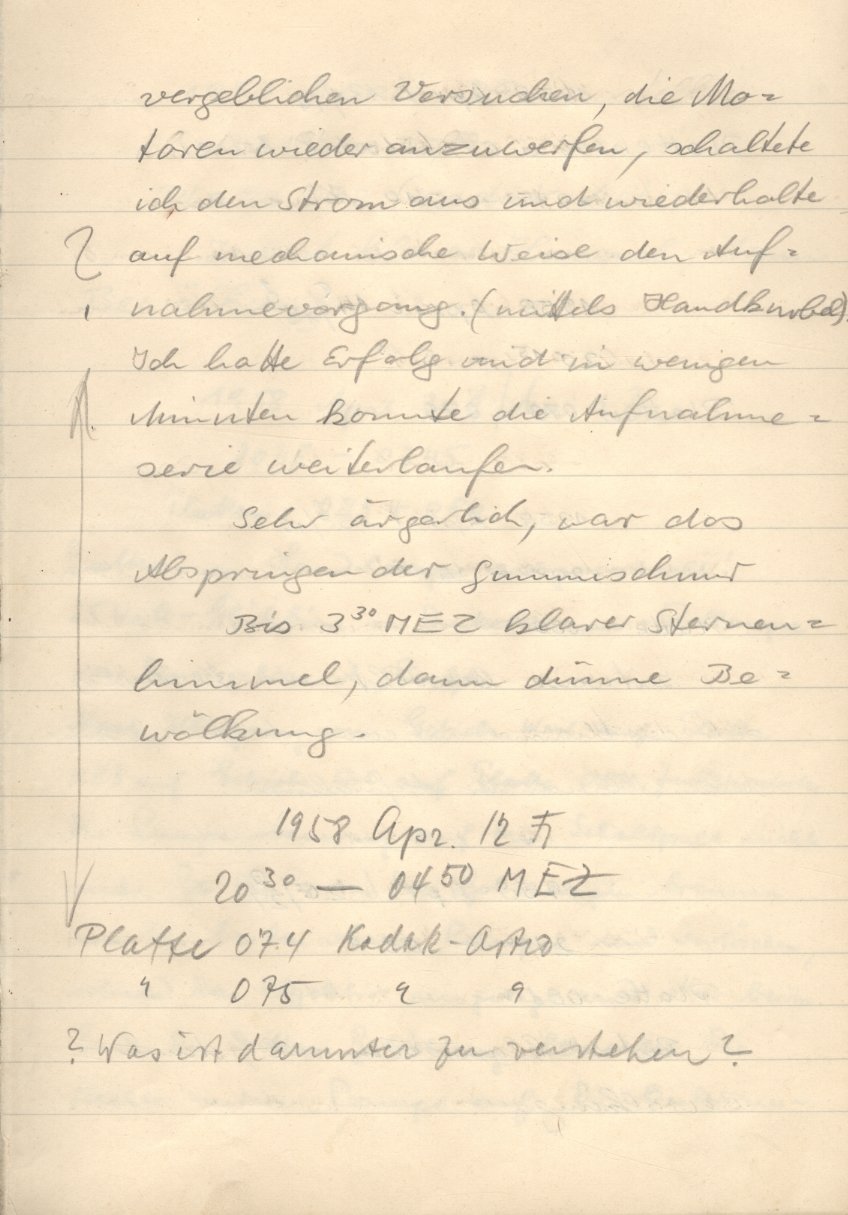 vergeblichen Versuchen, die Mo-
toren wieder anzuwerfen, schaltete
ich den Strom aus und wiederholte
? auf mechanische Weise den Auf-
nahmevorgang. (mittels Handkurbel).
Ich hatte Erfolg und in wenigen
Minuten konnte die Aufnahme-
serie weiterlaufen.
Sehr ärgerlich, war das
Abspringen der Gummischnur
Bis 3³⁰ MEZ klarer Sternen-
himmel, dann dünne Be-
wölkung.
1958 Apr. 12
20³⁰ — 04⁵⁰ MEZ
Platte 074 Kodak-Astro
" 075 " "
? Was ist darunter zu verstehen?